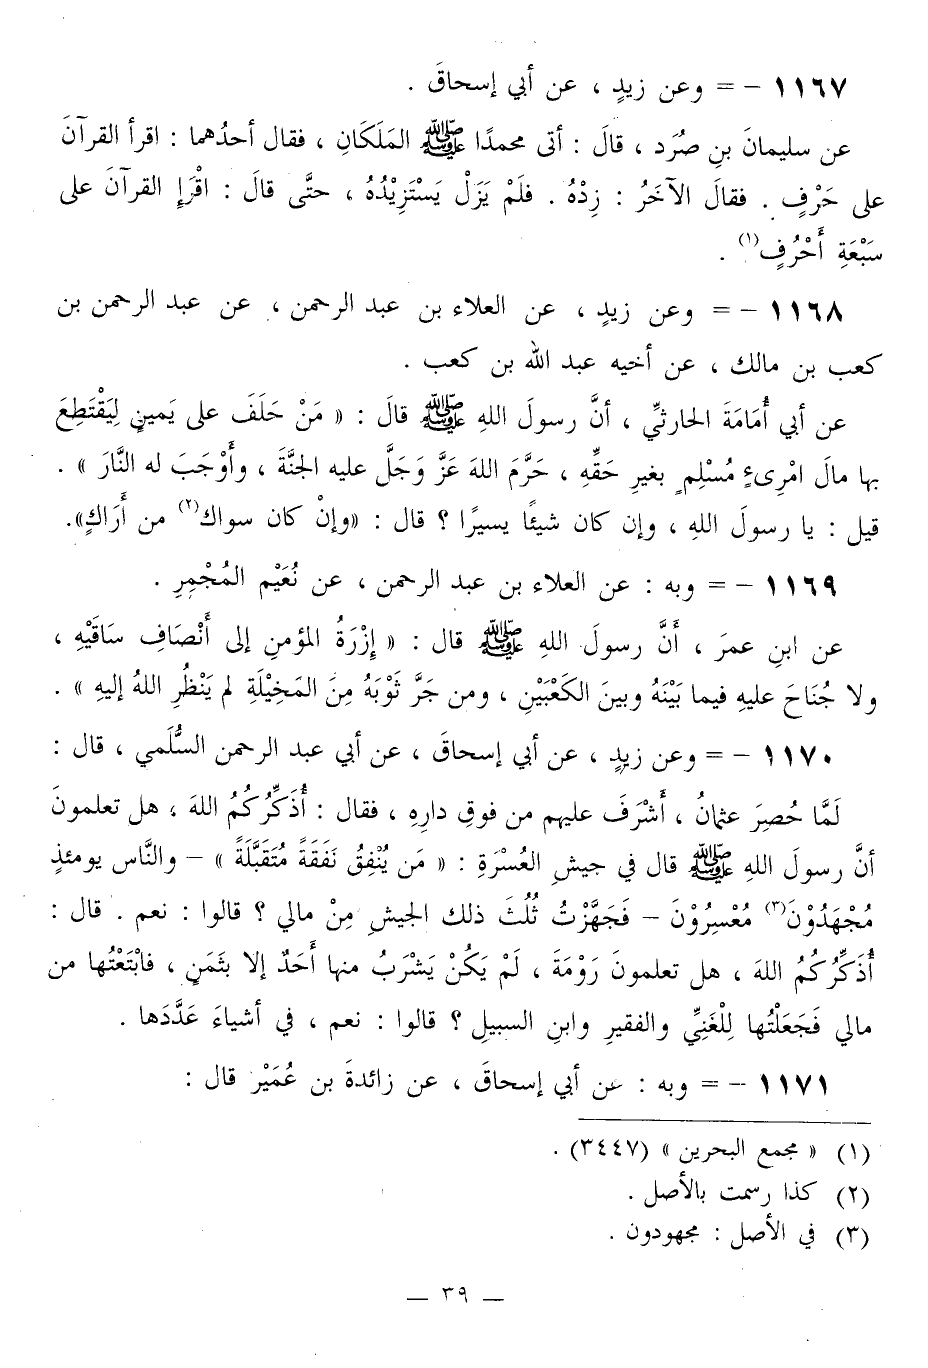 ١١٦٧ – = وعن زيدٍ ، عن أبي إسحاقَ .
عن سليمانَ بنِ صُرَد ، قالَ : أتى محمدًا ﷺ المَلَكَانِ ، فقال أحدُهما : اقرأ القرآنَ
على حَرْفٍ . فقالَ الآخَرُ : زِدْهُ . فلَمْ يَزَلْ يَسْتَزِيْدُهُ ، حتَّى قالَ : اقْرَإِ القرآنَ على
سَبْعَةِ أَحْرُفٍ(١) .
١١٦٨ – = وعن زيدٍ ، عن العلاء بن عبد الرحمن ، عن عبد الرحمن بن
كعب بن مالك ، عن أخيه عبد الله بن كعب .
عن أبي أُمَامَةَ الحارثيِّ ، أنَّ رسولَ اللهِ ﷺ قالَ : « مَنْ حَلَفَ على يَمينٍ لِيَقْتَطِعَ
بها مالَ امْرِىءٍ مُسْلِمٍ بغيرِ حَقِّهِ ، حَرَّمَ اللهَ عَزَّ وَجَلَّ عليه الجنَّةَ ، وأَوْجَبَ له النَّارَ » .
قيل : يا رسولَ اللهِ ، وإن كان شيئًا يسيرًا ؟ قال : «وإنْ كان سواك(٢) من أَرَاكٍ».
١١٦٩ – = وبه : عن العلاء بن عبد الرحمن ، عن نُعَيْم المُجْمِرِ .
عن ابنِ عمرَ ، أَنَّ رسولَ اللهِ ﷺ قال : « إِزْرَةُ المؤمنِ إلى أَنْصَافِ سَاقَيْهِ ،
ولا جُنَاحَ عليهِ فيما بَيْنَهُ وبينَ الكَعْبَيْنِ ، ومن جَرَّ ثَوْبَهُ مِنَ المَخِيْلَةِ لم يَنْظُرِ اللهُ إليهِ » .
١١٧٠ – = وعن زيدٍ ، عن أبي إسحاقَ ، عن أبي عبد الرحمن السُّلَمي ، قال :
لَمَّا حُصِرَ عثمانُ ، أَشْرَفَ عليهم من فوقِ دارِهِ ، فقال : أُذَكِّرُكُمُ اللهَ ، هل تعلمونَ
أنَّ رسولَ اللهِ ﷺ قال في جيشِ العُسْرَةِ : « مَن يُنْفِقُ نَفَقَةً مُتَقَبَّلَةً » – والنَّاس يومئذٍ
مُجْهَدُوْنَ(٣) مُعْسِرُوْنَ – فَجَهَّزْتُ ثُلُثَ ذلك الجيشِ مِنْ مالي ؟ قالوا : نعم . قال :
أُذَكِّرُكُمُ اللهَ ، هل تعلمونَ رَوْمَةَ ، لَمْ يَكُنْ يَشْرَبُ منها أَحَدٌ إلا بثَمَنٍ ، فابْتَعْتُها من
مالي فَجَعَلْتُها لِلْغَنِيِّ والفقيرِ وابنِ السبيلِ ؟ قالوا : نعم ، في أشياءَ عَدَّدَها .
١١٧١ – = وبه : عن أبي إسحاقَ ، عن زائدةَ بن عُمَيْر قال :
(١) « مجمع البحرين » (٣٤٤٧) .
(٢) كذا رسمت بالأصل .
(٣) في الأصل : مجهودون .
— ٣٩ —